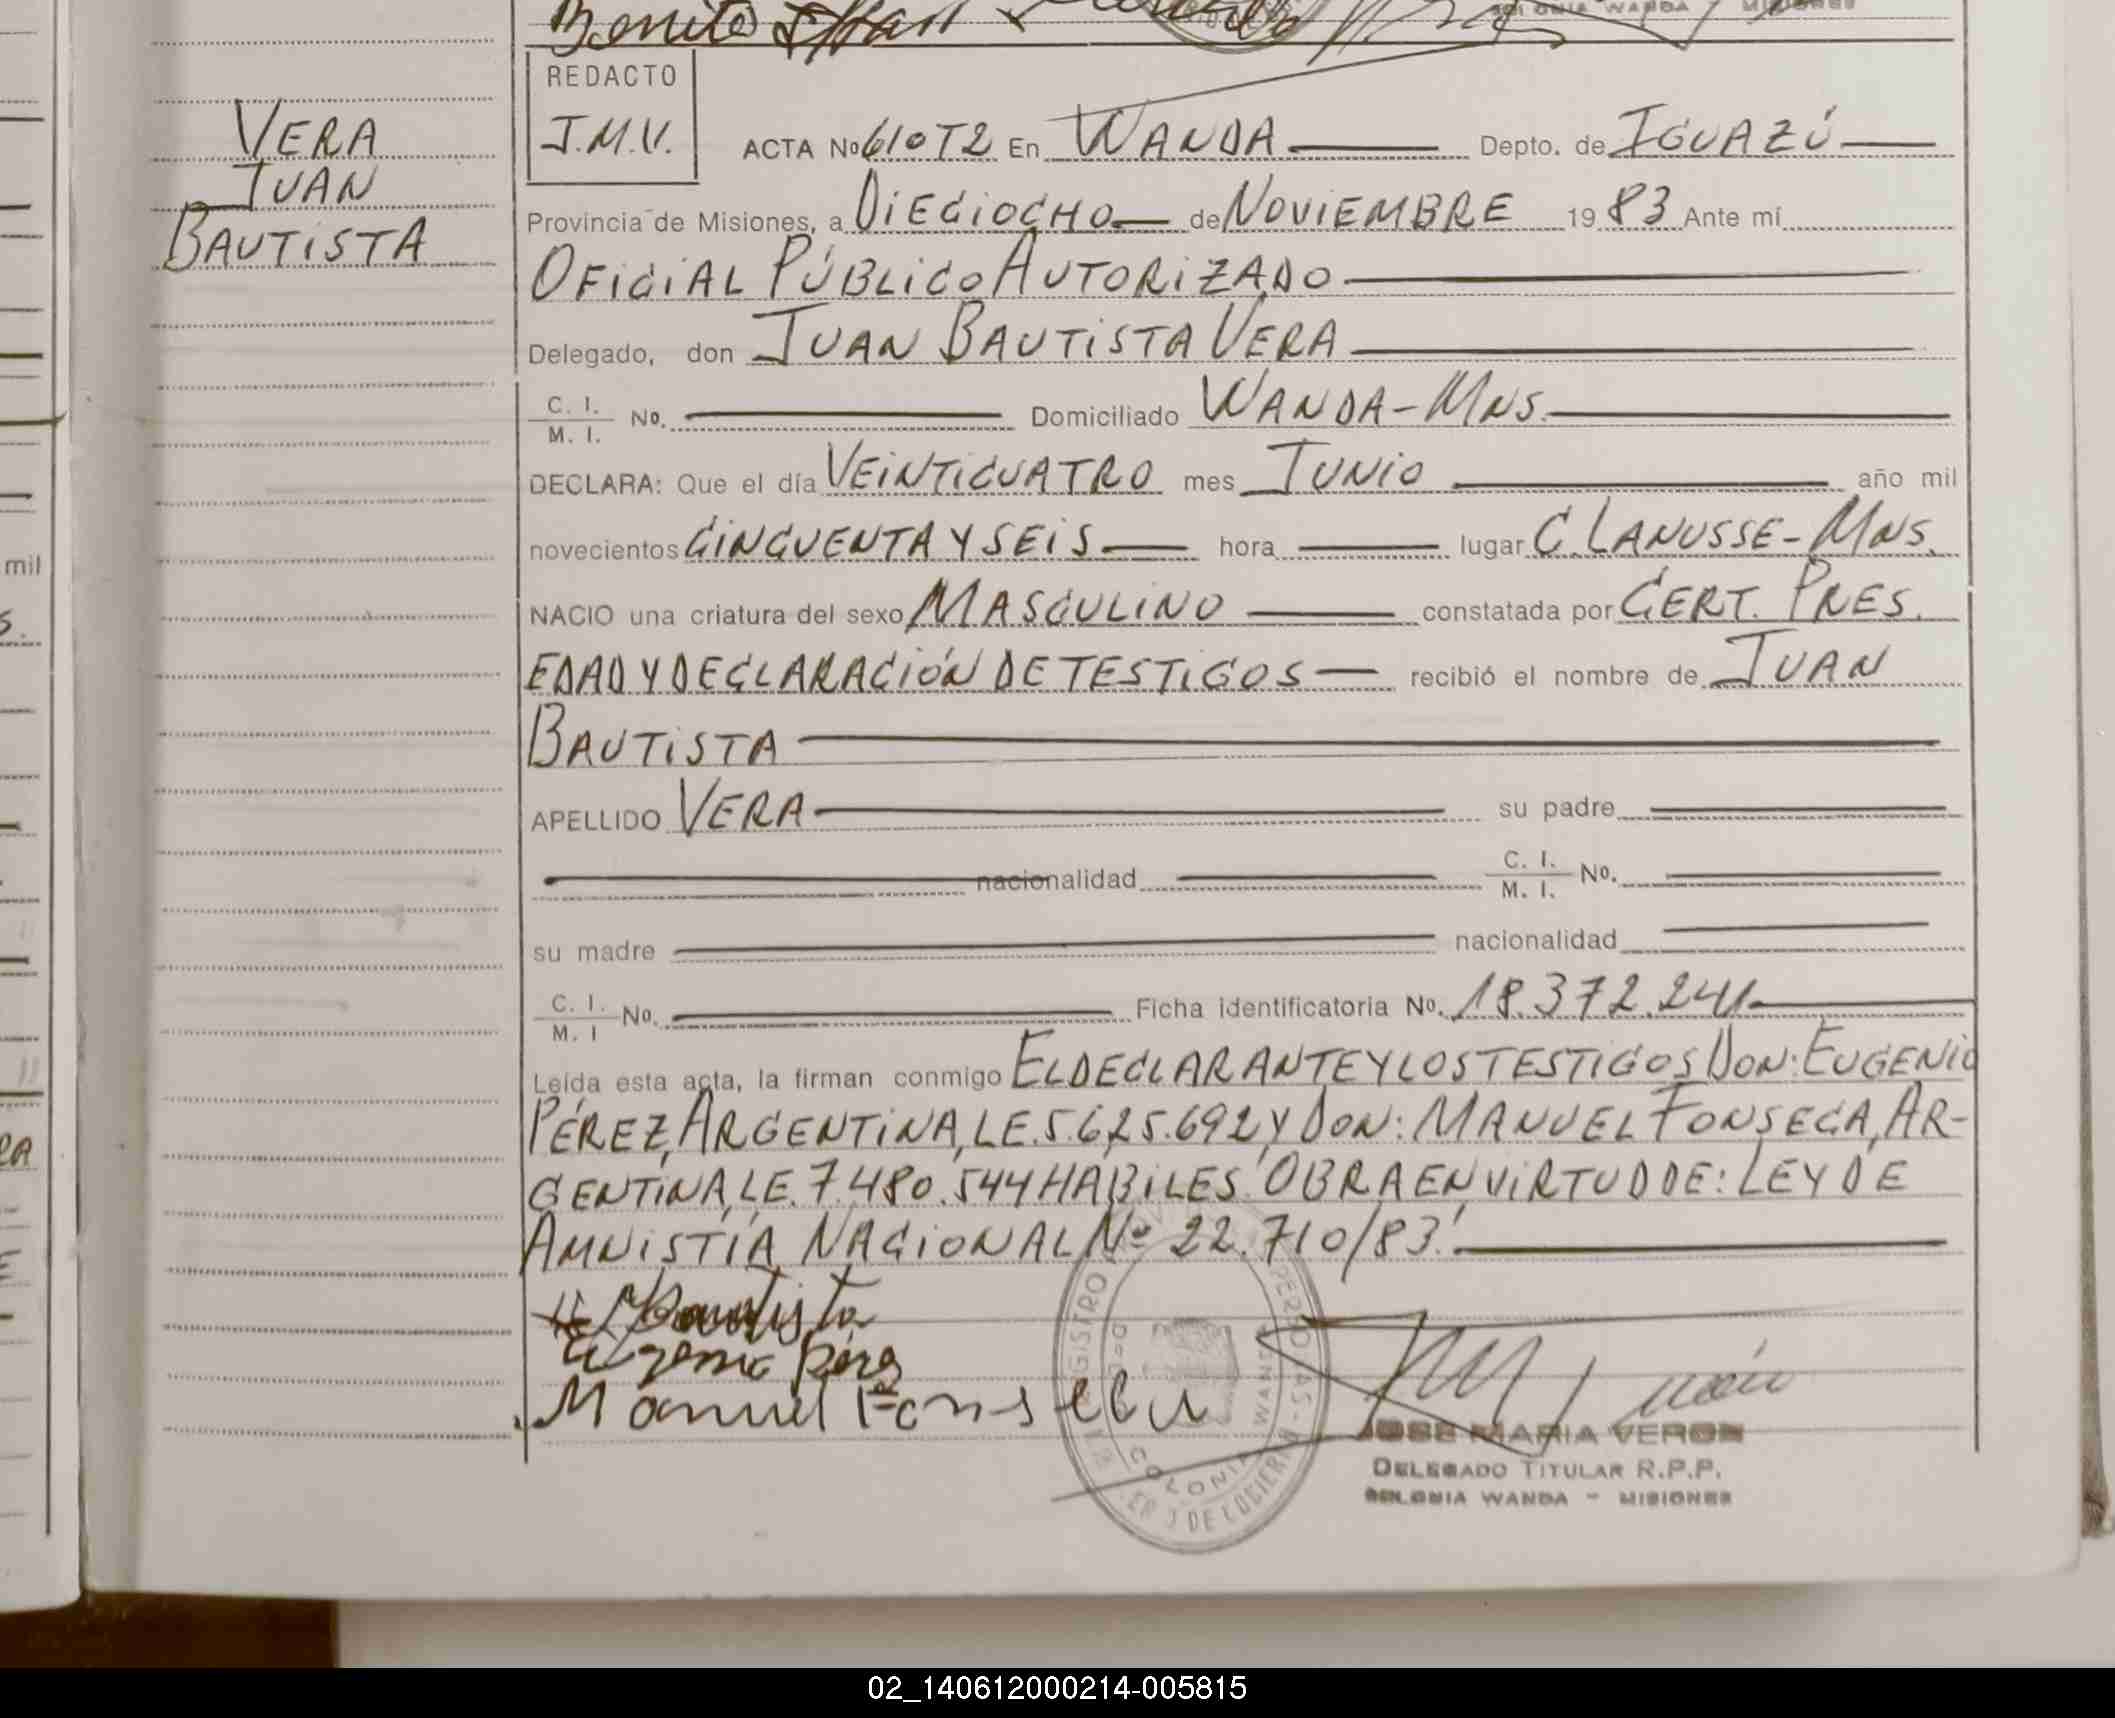 Benito
VERA
JUAN
BAUTISTA
REDACTO
J.M.V.
ACTA Nº 610 T2 En WANDA Depto. de IGUAZÚ
Provincia de Misiones, a DIECIOCHO de NOVIEMBRE 1983 Ante mí
OFICIAL PÚBLICO AUTORIZADO
Delegado, don JUAN BAUTISTA VERA
C. I. / M. I. No. Domiciliado WANDA-MNS.
DECLARA: Que el día VEINTICUATRO mes JUNIO año mil
novecientos CINCUENTA Y SEIS hora lugar C. LANUSSE-MNS.
NACIO una criatura del sexo MASCULINO constatada por CERT. PRES.
EDAD Y DECLARACIÓN DE TESTIGOS recibió el nombre de JUAN
BAUTISTA
APELLIDO VERA su padre
nacionalidad C. I. / M. I. No.
su madre nacionalidad
C. I. / M. I No. Ficha identificatoria No. 18.372.241
Leída esta acta, la firman conmigo EL DECLARANTE Y LOS TESTIGOS DON: EUGENIO
PÉREZ, ARGENTINA, L.E. 5.625.692 Y DON: MANUEL FONSECA, AR-
GENTINA, L.E. 7.480.544 HABILES. "OBRA EN VIRTUD DE: LEY DE
AMNISTÍA NACIONAL Nº 22.710/83".
Bautista
Eugenio Perez
Manuel Fonseca
REGISTRO
COLONIA WANDA
JOSE MARIA VERON
DELEGADO TITULAR R.P.P.
COLONIA WANDA - MISIONES
02_140612000214-005815